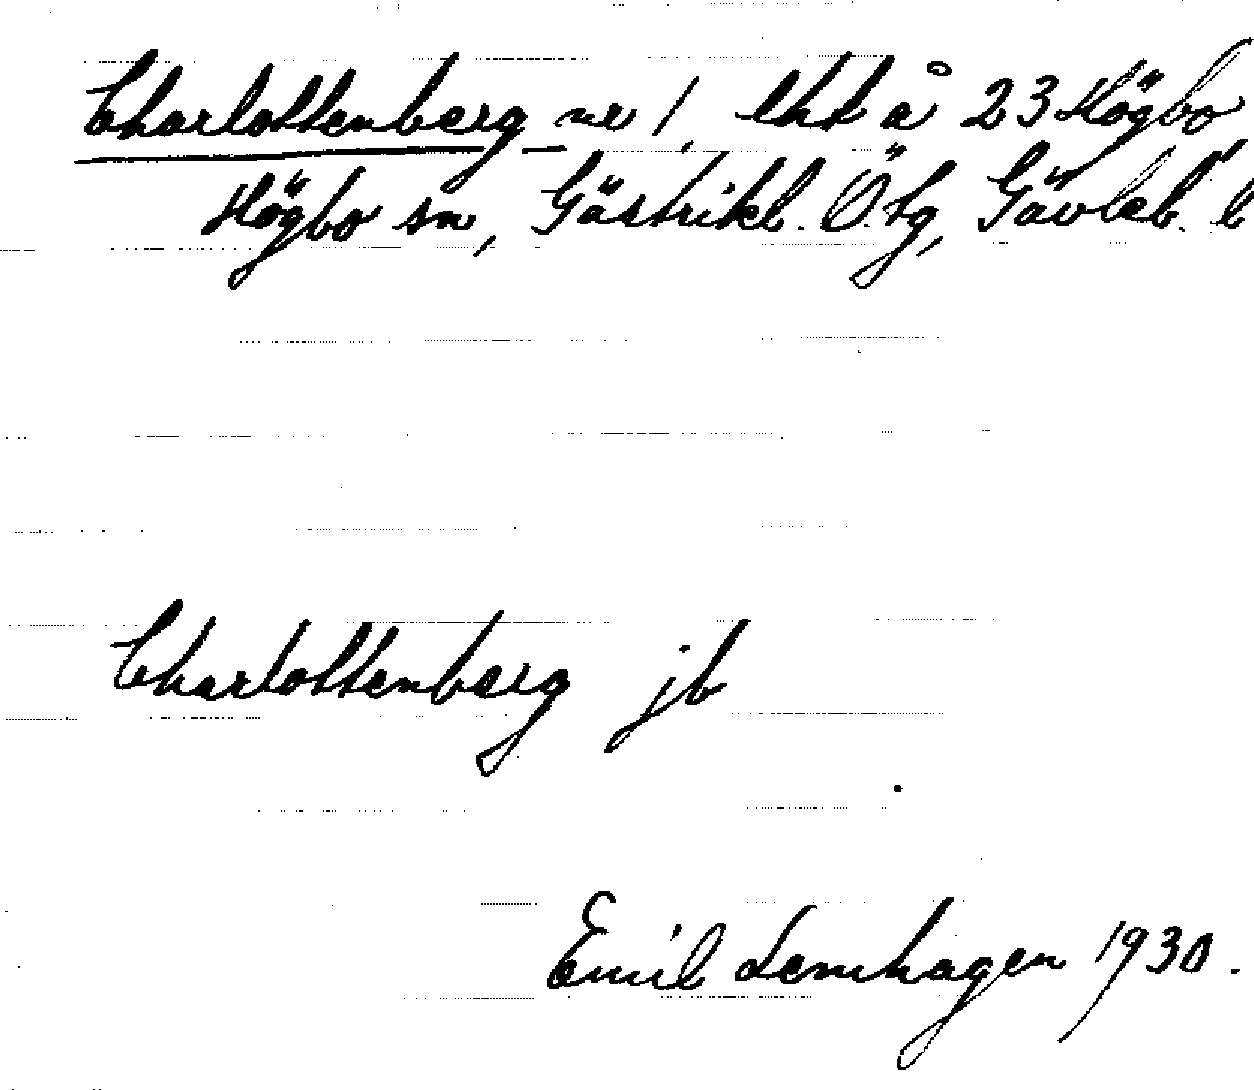 Charlottenberg nr 1, lht å 23 Högbo,
Högbo sn, Gästrikl. Ö. tg, Gävleb. l
Charlottenberg jb
Emil Lemhagen 1930.